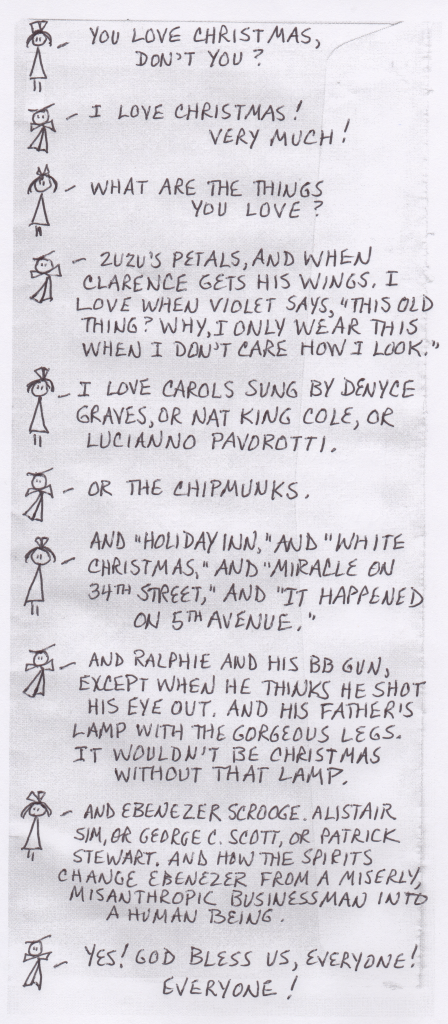 - YOU LOVE CHRISTMAS,
DON'T YOU?
- I LOVE CHRISTMAS!
VERY MUCH!
- WHAT ARE THE THINGS
YOU LOVE?
- ZUZU'S PETALS, AND WHEN
CLARENCE GETS HIS WINGS. I
LOVE WHEN VIOLET SAYS, "THIS OLD
THING? WHY, I ONLY WEAR THIS
WHEN I DON'T CARE HOW I LOOK."
- I LOVE CAROLS SUNG BY DENYCE
GRAVES, OR NAT KING COLE, OR
LUCIANNO PAVOROTTI.
- OR THE CHIPMUNKS.
- AND "HOLIDAY INN," AND "WHITE
CHRISTMAS," AND "MIRACLE ON
34TH STREET," AND "IT HAPPENED
ON 5TH AVENUE."
- AND RALPHIE AND HIS BB GUN,
EXCEPT WHEN HE THINKS HE SHOT
HIS EYE OUT. AND HIS FATHER'S
LAMP WITH THE GORGEOUS LEGS.
IT WOULDN'T BE CHRISTMAS
WITHOUT THAT LAMP.
- AND EBENEZER SCROOGE. ALISTAIR
SIM, OR GEORGE C. SCOTT, OR PATRICK
STEWART. AND HOW THE SPIRITS
CHANGE EBENEZER FROM A MISERLY,
MISANTHROPIC BUSINESSMAN INTO
A HUMAN BEING.
- YES! GOD BLESS US, EVERYONE!
EVERYONE!